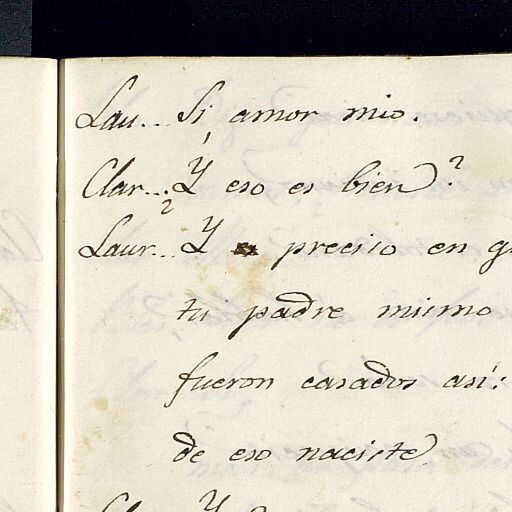 Lau... Si, amor mio.
Clar... ¿Y eso es bien?
Laur... Y es preciso en
tu padre mismo
fueron casados así:
de eso naciste
Y